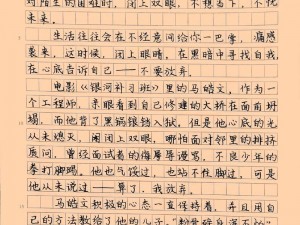 对陌生的困难时，闭上双眼，不想当下，不忧
未来。
生活往往会在不经意间给你一巴掌，痛感
袭来，这时候，闭上双眼，在黑暗中寻找自我，
在心底告诉自己——不要放弃。
电影《银河补习班》里的马皓文，作为一
个工程师，亲眼看到自己修建的大桥在面前坍
塌，而他背了黑锅锒铛入狱，但是他心底的光
从未熄灭，闭上双眼，哪怕面对邻里的排挤
质问，曾经面试者的侮辱谩骂，不良少年的
拳打脚踢，他也气馁过，也吃不住脚过，可是
他从来说过——算了，我放弃。
马皓文积极的心态一直保持着，并且用自
己的方法教给了他的儿子，“粉骨碎身浑不怕